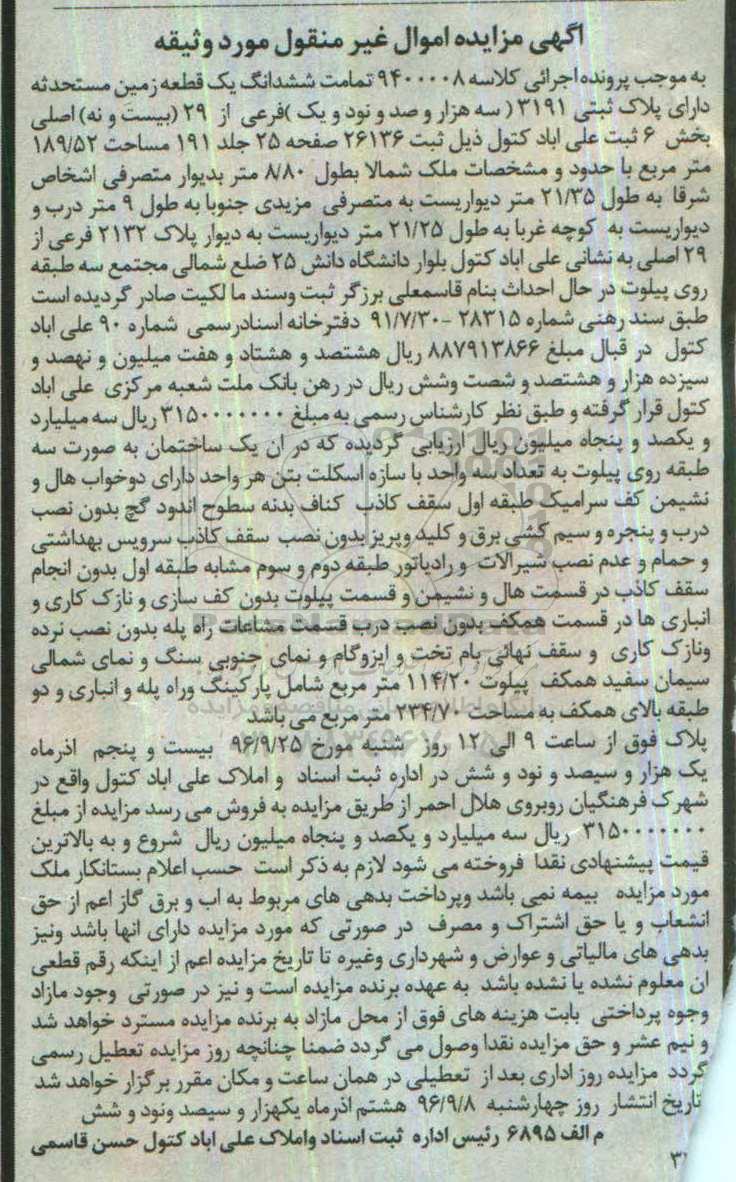 آگهی مزایده اموال غیر منقول مورد وثیقه
به موجب پرونده اجرائی کلاسه ۹۴۰۰۰۰۸ تمامت ششدانگ یک قطعه زمین مستحدثه
دارای پلاک ثبتی ۳۱۹۱ ( سه هزار و صد و نود و یک )فرعی از ۲۹ (بیست و نه) اصلی
بخش ۶ ثبت علی اباد کتول ذیل ثبت ۲۶۱۳۶ صفحه ۲۵ جلد ۱۹۱ مساحت ۱۸۹/۵۲
متر مربع با حدود و مشخصات ملک شمالا بطول ۸/۸۰ متر بدیوار متصرفی اشخاص
شرقا به طول ۲۱/۳۵ متر دیواریست به متصرفی مزیدی جنوبا به طول ۹ متر درب و
دیواریست به کوچه غربا به طول ۲۱/۲۵ متر دیواریست به دیوار پلاک ۲۱۳۲ فرعی از
۲۹ اصلی به نشانی علی اباد کتول بلوار دانشگاه دانش ۲۵ ضلع شمالی مجتمع سه طبقه
روی پیلوت در حال احداث بنام قاسمعلی برزگر ثبت وسند ما لکیت صادر گردیده است
طبق سند رهنی شماره ۲۸۳۱۵ -۹۱/۷/۳۰ دفترخانه اسنادرسمی شماره ۹۰ علی اباد
کتول در قبال مبلغ ۸۸۷۹۱۳۸۶۶ ریال هشتصد و هشتاد و هفت میلیون و نهصد و
سیزده هزار و هشتصد و شصت وشش ریال در رهن بانک ملت شعبه مرکزی علی اباد
کتول قرار گرفته و طبق نظر کارشناس رسمی به مبلغ ۳۱۵۰۰۰۰۰۰۰ ریال سه میلیارد
و یکصد و پنجاه میلیون ریال ارزیابی گردیده که در ان یک ساختمان به صورت سه
طبقه روی پیلوت به تعداد سه واحد با سازه اسکلت بتن هر واحد دارای دوخواب هال و
نشیمن کف سرامیک طبقه اول سقف کاذب کناف بدنه سطوح اندود گچ بدون نصب
درب و پنجره و سیم کشی برق و کلید وپریز بدون نصب سقف کاذب سرویس بهداشتی
و حمام و عدم نصب شیرالات و رادیاتور طبقه دوم و سوم مشابه طبقه اول بدون انجام
سقف کاذب در قسمت هال و نشیمن و قسمت پیلوت بدون کف سازی و نازک کاری و
انباری ها در قسمت همکف بدون نصب درب قسمت مشاعات راه پله بدون نصب نرده
ونازک کاری و سقف نهائی بام تخت و ایزوگام و نمای جنوبی سنگ و نمای شمالی
سیمان سفید همکف پیلوت ۱۱۴/۲۰ متر مربع شامل پارکینگ وراه پله و انباری و دو
طبقه بالای همکف به مساحت ۲۳۴/۷۰ متر مربع می باشد
پلاک فوق از ساعت ۹ الی ۱۲ روز شنبه مورخ ۹۶/۹/۲۵ بیست و پنجم اذرماه
یک هزار و سیصد و نود و شش در اداره ثبت اسناد و املاک علی اباد کتول واقع در
شهرک فرهنگیان روبروی هلال احمر از طریق مزایده به فروش می رسد مزایده از مبلغ
۳۱۵۰۰۰۰۰۰۰ ریال سه میلیارد و یکصد و پنجاه میلیون ریال شروع و به بالاترین
قیمت پیشنهادی نقدا فروخته می شود لازم به ذکر است حسب اعلام بستانکار ملک
مورد مزایده بیمه نمی باشد وپرداخت بدهی های مربوط به اب و برق گاز اعم از حق
انشعاب و یا حق اشتراک و مصرف در صورتی که مورد مزایده دارای انها باشد ونیز
بدهی های مالیاتی و عوارض و شهرداری وغیره تا تاریخ مزایده اعم از اینکه رقم قطعی
ان معلوم نشده یا نشده باشد به عهده برنده مزایده است و نیز در صورتی وجود مازاد
وجوه پرداختی بابت هزینه های فوق از محل مازاد به برنده مزایده مسترد خواهد شد
و نیم عشر و حق مزایده نقدا وصول می گردد ضمنا چنانچه روز مزایده تعطیل رسمی
گردد مزایده روز اداری بعد از تعطیلی در همان ساعت و مکان مقرر برگزار خواهد شد
تاریخ انتشار روز چهارشنبه ۹۶/۹/۸ هشتم اذرماه یکهزار و سیصد ونود و شش
م الف ۶۸۹۵ رئیس اداره ثبت اسناد واملاک علی اباد کتول حسن قاسمی